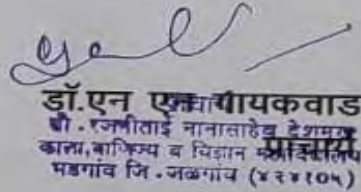 डॉ.एन एन गायकवाड
प्राचार्य
सौ.रजनीताई नानासाहेब देशमुख
कला,वाणिज्य व विज्ञान महाविद्यालय
भडगांव जि.जळगांव (४२४१०५)